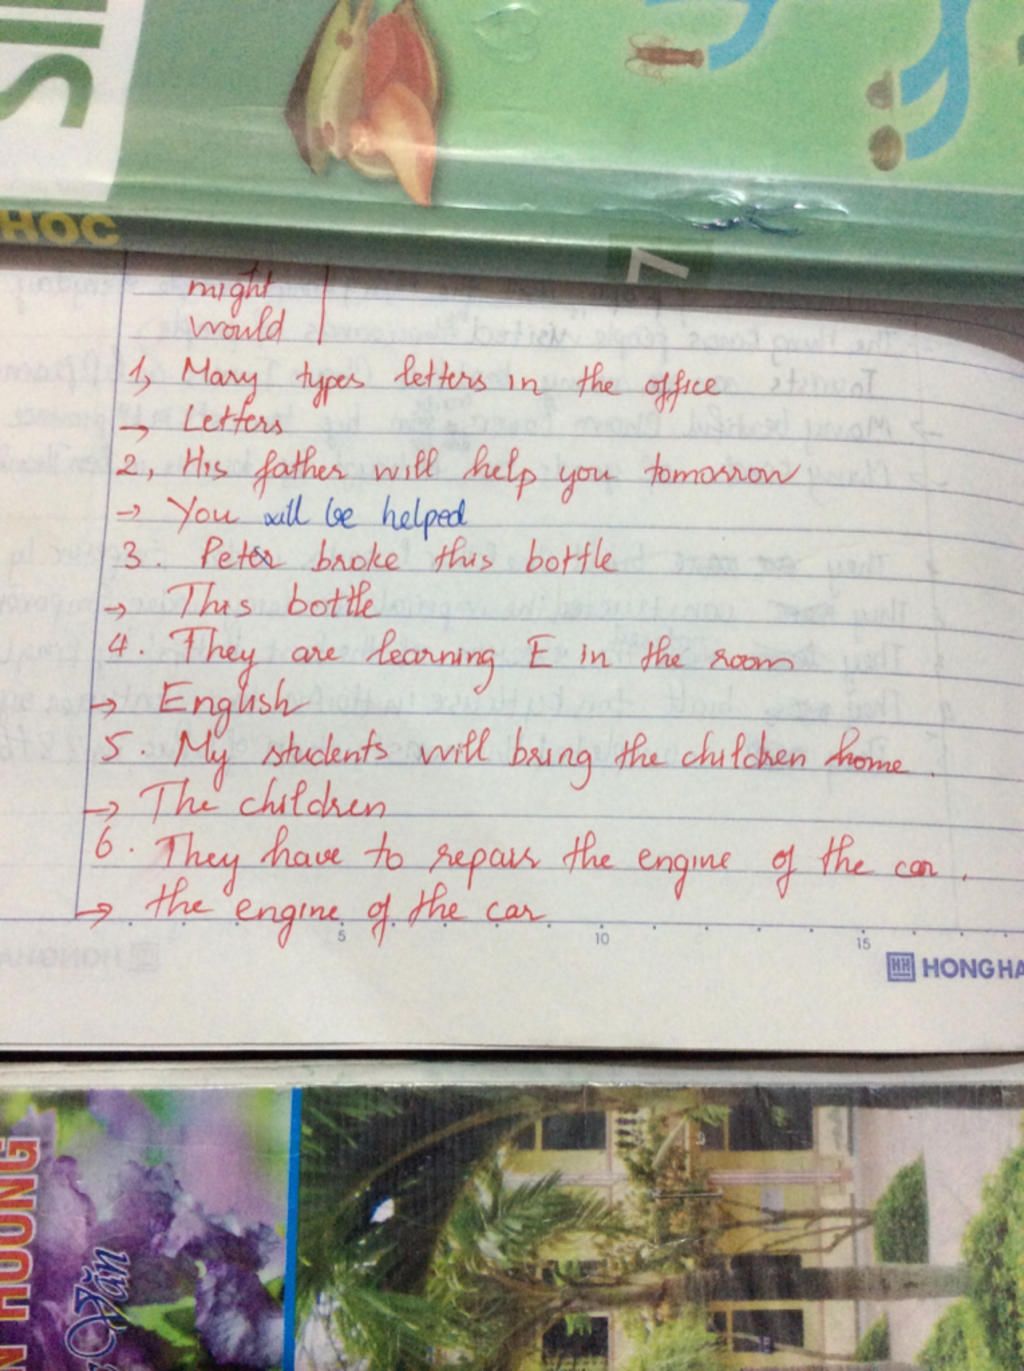 SIN
HỌC
7
might
would
1, Mary types letters in the office
→ Letters
2, His father will help you tomorrow
→ You will be helped
3. Peter broke this bottle
→ This bottle
4. They are learning E in the room
→ English
5. My students will bring the children home.
→ The children
6. They have to repair the engine of the car.
→ the engine of the car
5 10 15
HH HONG HA
HƯƠNG
Văn